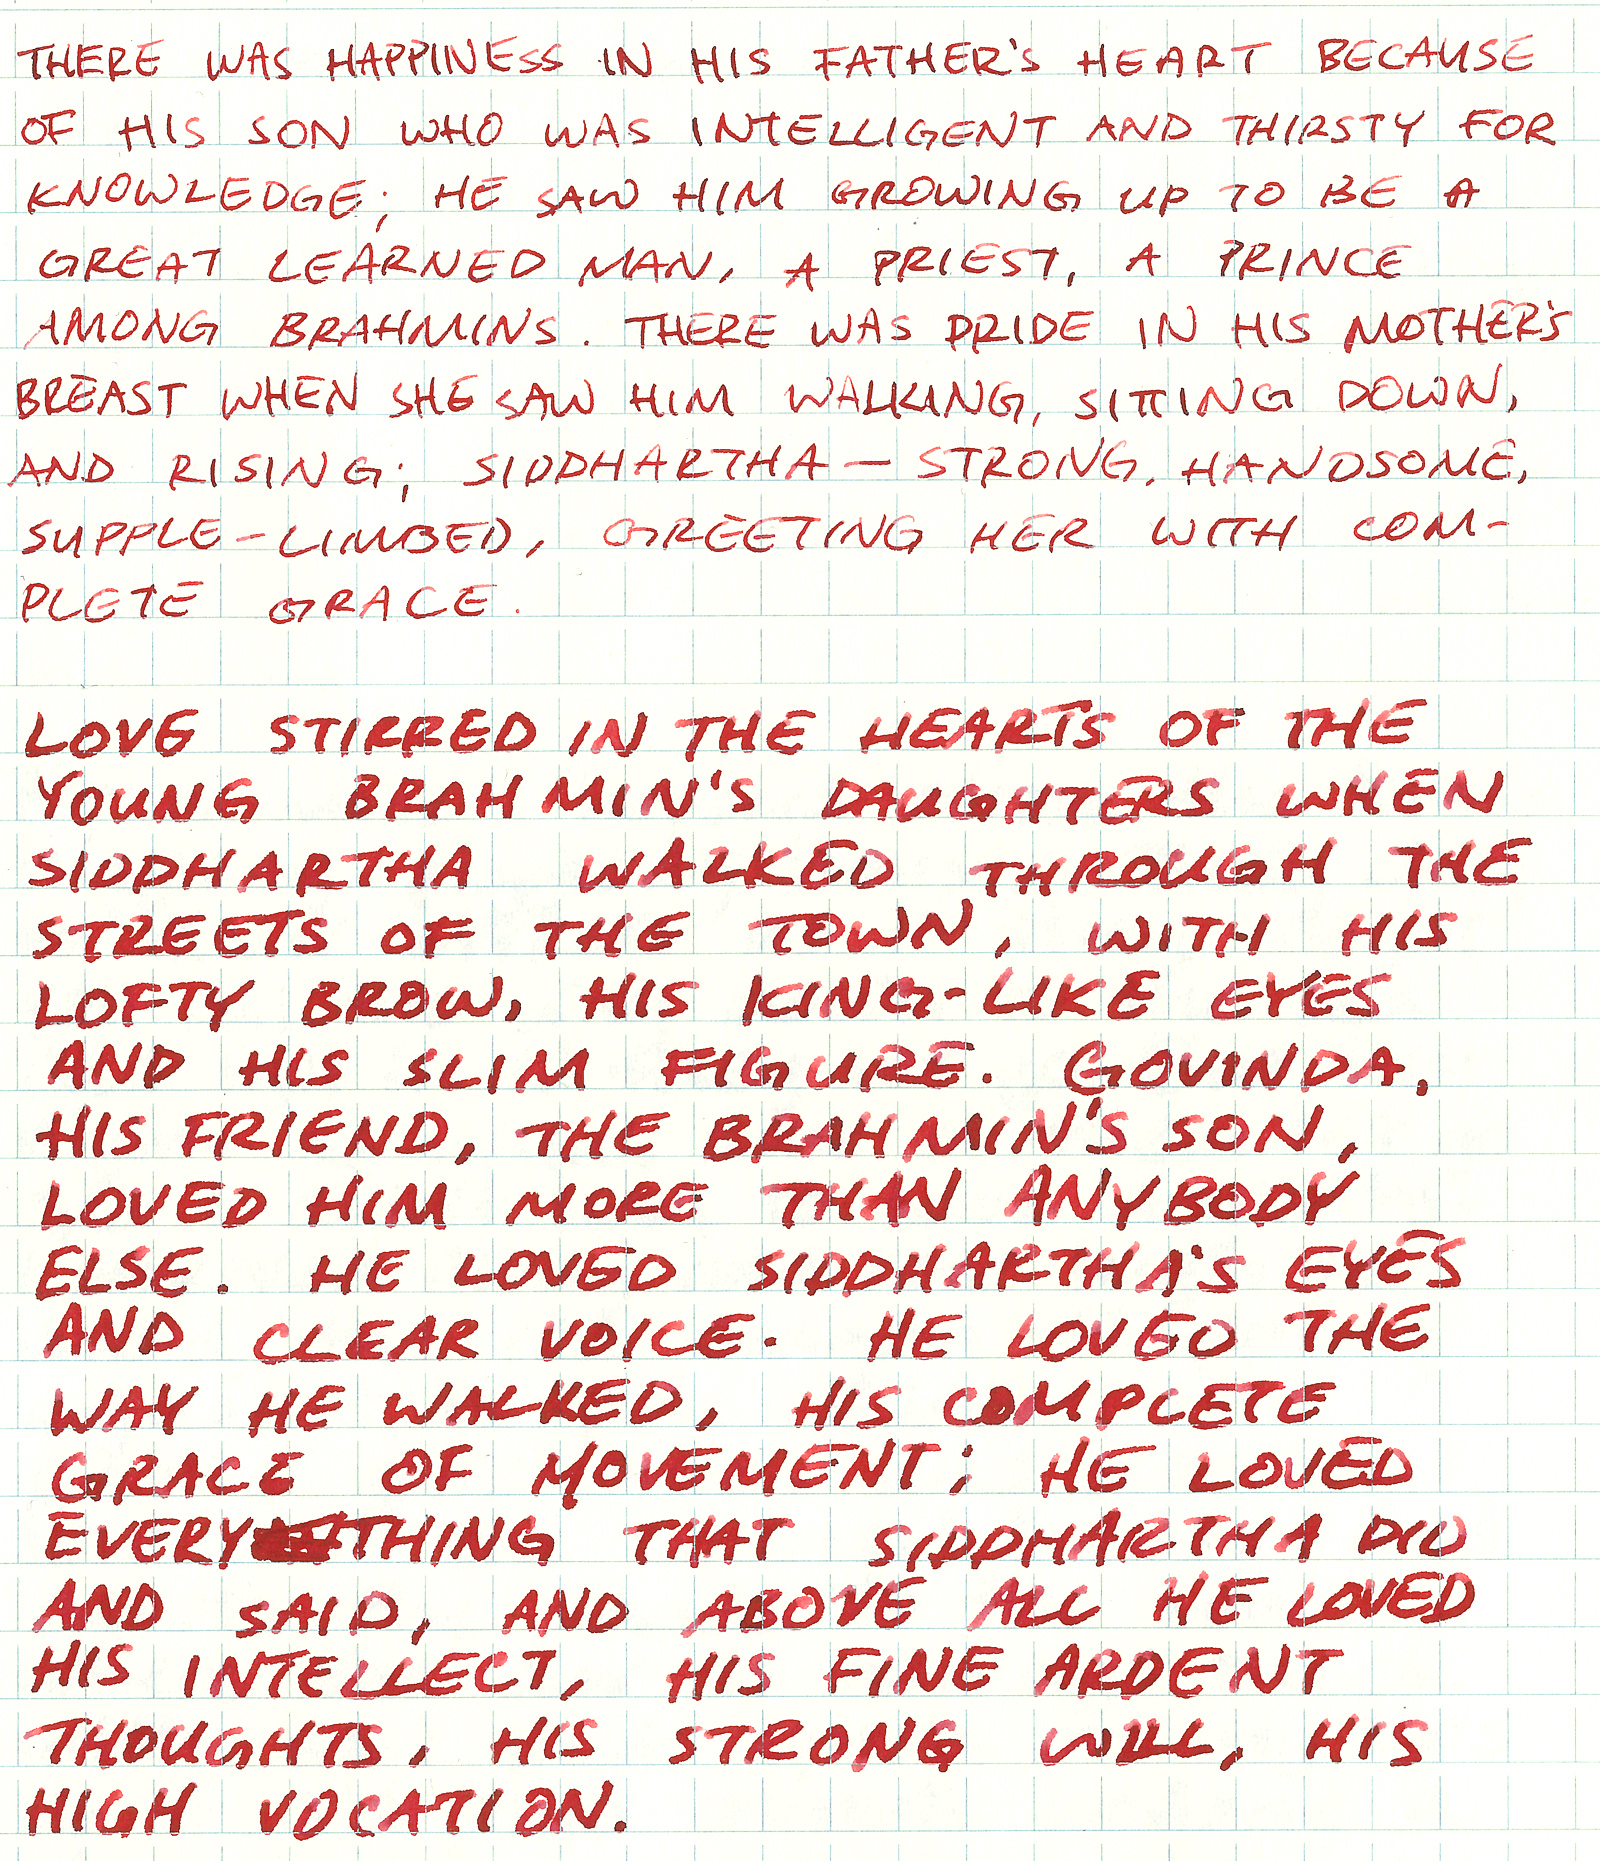 THERE WAS HAPPINESS IN HIS FATHER'S HEART BECAUSE
OF HIS SON WHO WAS INTELLIGENT AND THIRSTY FOR
KNOWLEDGE; HE SAW HIM GROWING UP TO BE A
GREAT LEARNED MAN, A PRIEST, A PRINCE
AMONG BRAHMINS. THERE WAS PRIDE IN HIS MOTHER'S
BREAST WHEN SHE SAW HIM WALKING, SITTING DOWN,
AND RISING; SIDDHARTHA — STRONG, HANDSOME,
SUPPLE-LIMBED, GREETING HER WITH COM-
PLETE GRACE.
LOVE STIRRED IN THE HEARTS OF THE
YOUNG BRAHMIN'S DAUGHTERS WHEN
SIDDHARTHA WALKED THROUGH THE
STREETS OF THE TOWN, WITH HIS
LOFTY BROW, HIS KING-LIKE EYES
AND HIS SLIM FIGURE. GOVINDA,
HIS FRIEND, THE BRAHMIN'S SON,
LOVED HIM MORE THAN ANYBODY
ELSE. HE LOVED SIDDHARTHA'S EYES
AND CLEAR VOICE. HE LOVED THE
WAY HE WALKED, HIS COMPLETE
GRACE OF MOVEMENT; HE LOVED
EVERYTHING THAT SIDDHARTHA DID
AND SAID, AND ABOVE ALL HE LOVED
HIS INTELLECT, HIS FINE ARDENT
THOUGHTS, HIS STRONG WILL, HIS
HIGH VOCATION.